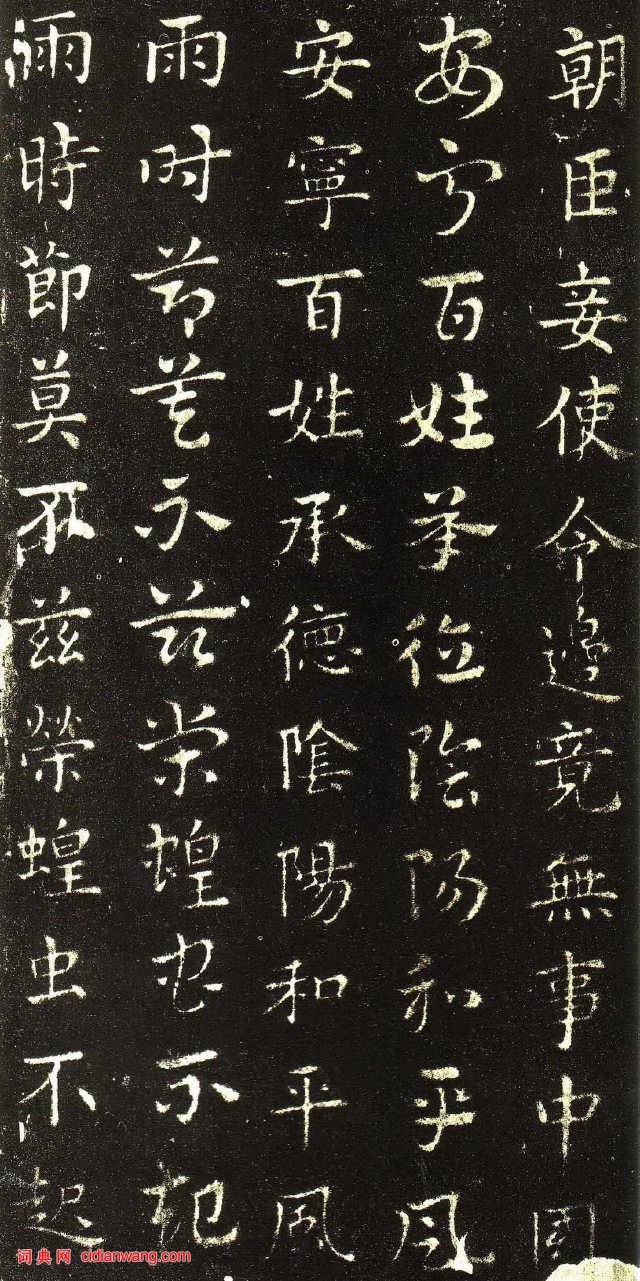 朝臣妾使令邊竟無事中國
安寧百姓承德陰陽和平風
安寧百姓承德陰陽和平風
雨時節莫不茲榮蝗虫不起
雨時節莫不茲榮蝗虫不起
词典网 cidianwang.com